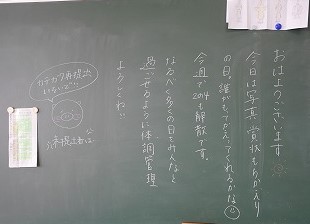 おはようございます
今日は写真、賞状もちかえり
の日。誰がもってかえってくれるかな
今週で2014も解散です。
なるべく多くの日をみんなと
過ごせるように体調管理
よろしくね!!
再提出